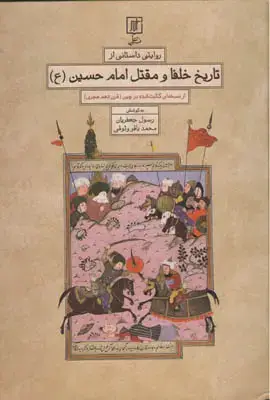 روایتی داستانی از
تاریخ خلفا و مقتل امام حسین (ع)
از نسخه‌ای کتابت‌شده در چین (قرن دهم هجری)
به کوشش
رسول جعفریان
محمد باقر وثوقی